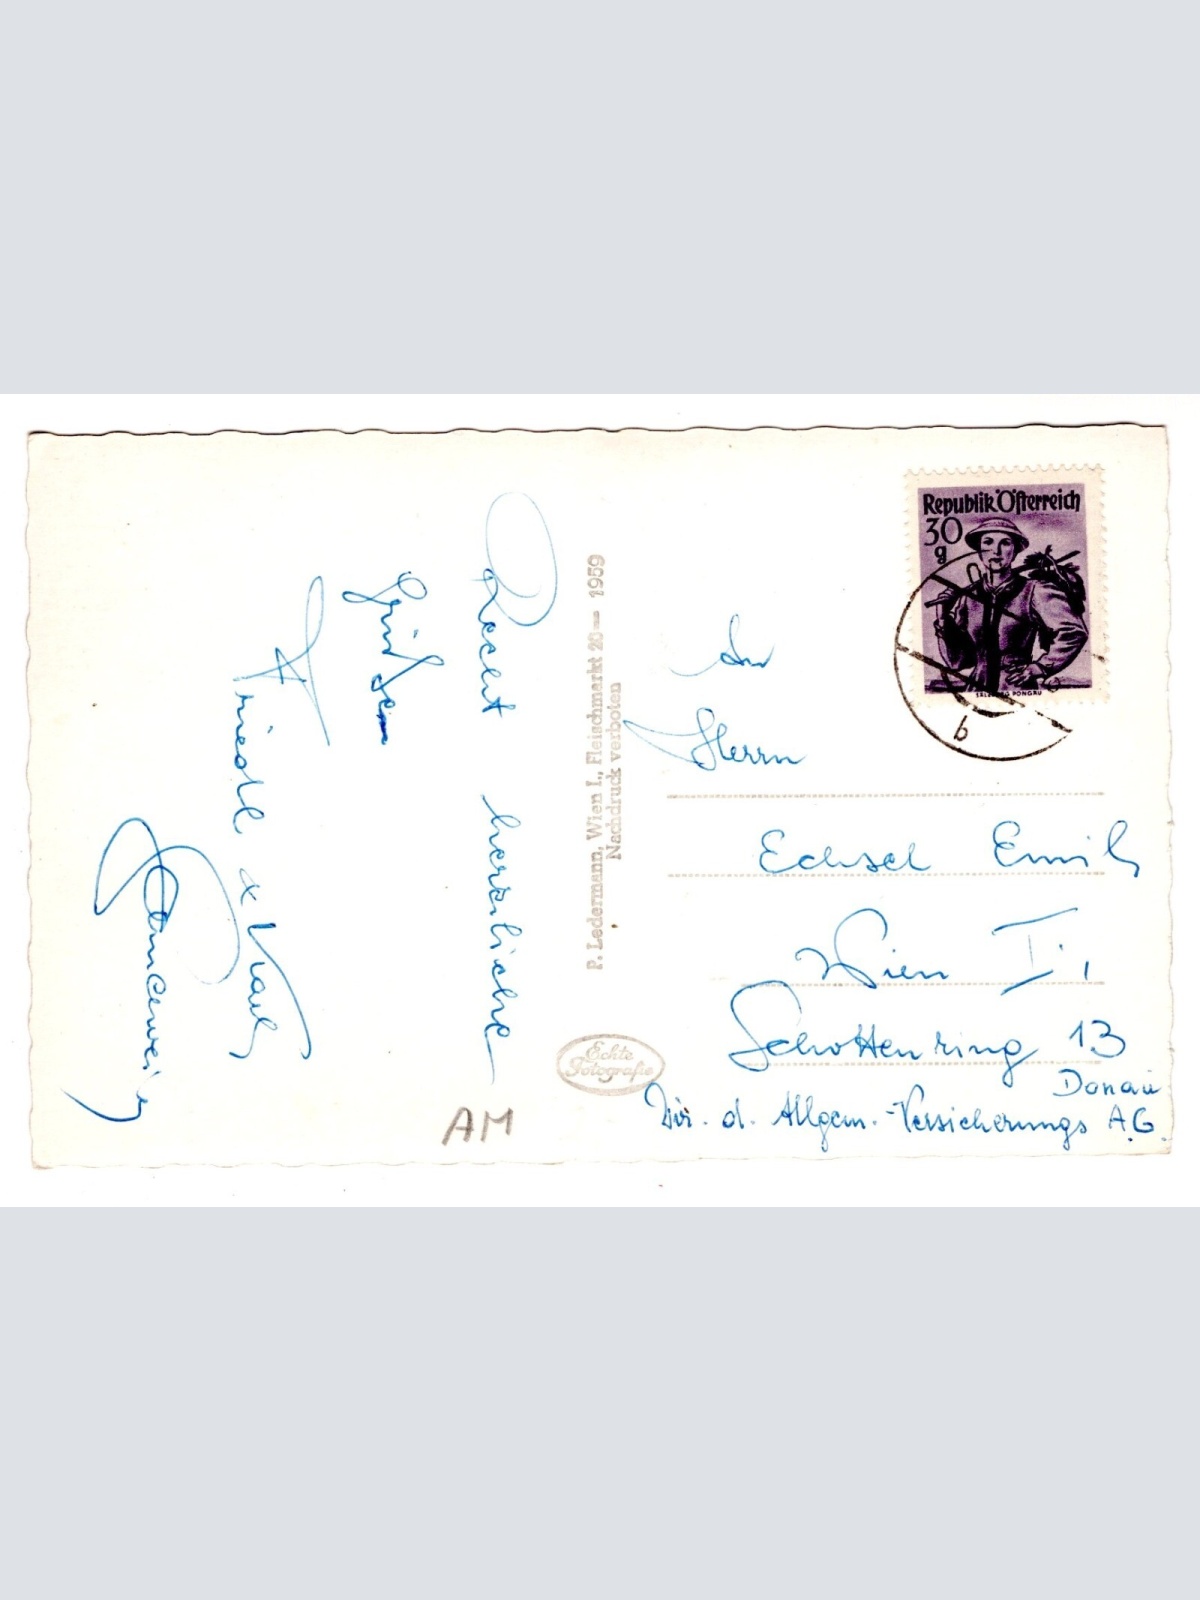 Recht herzliche
Grüße
Friedl & Karl
P. Ledermann, Wien I., Fleischmarkt 20 — 1959
Nachdruck verboten
Echte
Fotografie
AM
Republik Österreich
30
g
SALZBURG PONGAU
b
An
Herrn
Echsel Emil
Wien I.,
Schottenring 13
Donau
Dir. d. Allgem.-Versicherungs A.G.